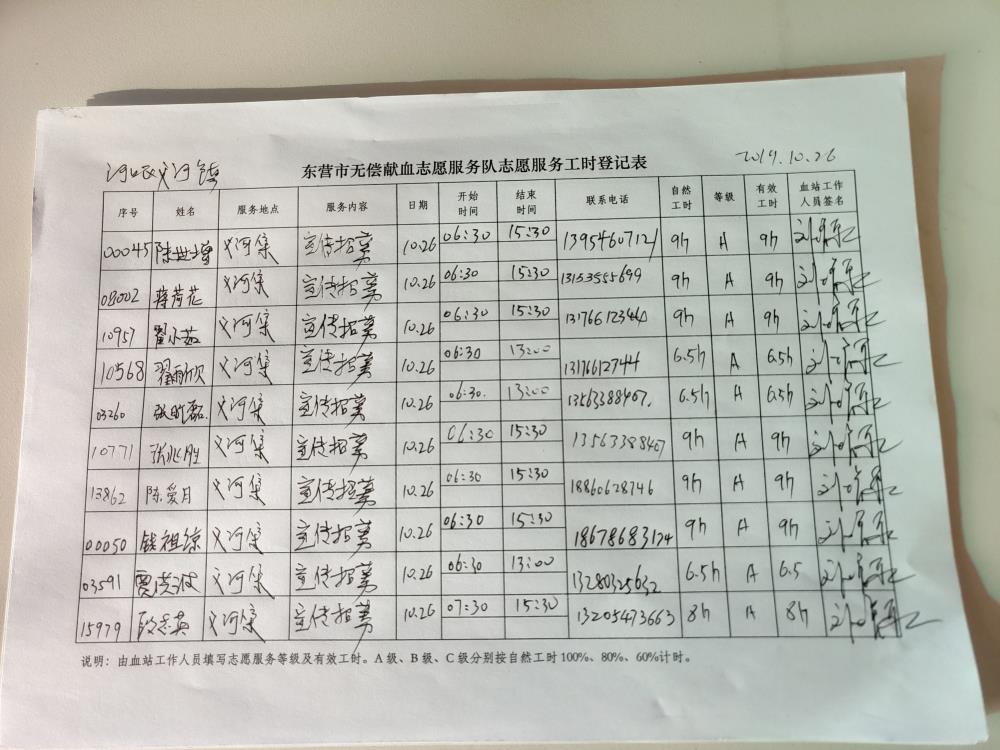 河口区义河镇 东营市无偿献血志愿服务队志愿服务工时登记表 2019.10.26
序号 姓名 服务地点 服务内容 日期 开始时间 结束时间 联系电话 自然工时 等级 有效工时 血站工作人员签名
00045 陈世增 义河集 宣传招募 10.26 06:30 15:30 13954607121 9h A 9h
08002 蒋荷花 义河集 宣传招募 10.26 06:30 15:30 13153555699 9h A 9h
10957 翟小茹 义河集 宣传招募 10.26 06:30 15:30 9h A 9h
10568 翟雨欣 义河集 宣传招募 10.26 06:30 13:00 13176612744 6.5h A 6.5h
03260 义河集 宣传招募 10.26 06:30. 13:00 13563388407. 6.5h A 6.5h
10771 张兆胜 义河集 宣传招募 10.26 06:30 15:30 13563388407 9h A 9h
13862 陈爱月 义河集 宣传招募 10.26 06:30 15:30 18860628746 9h A 9h
00050 钱祖琼 义河集 宣传招募 10.26 06:30 15:30 18678683124 9h A 9h
03591 贾洪波 义河集 宣传招募 10.26 06:30 13:00 13280325632 6.5h A 6.5
15979 段志英 义河集 宣传招募 10.26 07:30 15:30 13205473663 8h A 8h
说明：由血站工作人员填写志愿服务等级及有效工时。A级、B级、C级分别按自然工时100%、80%、60%计时。